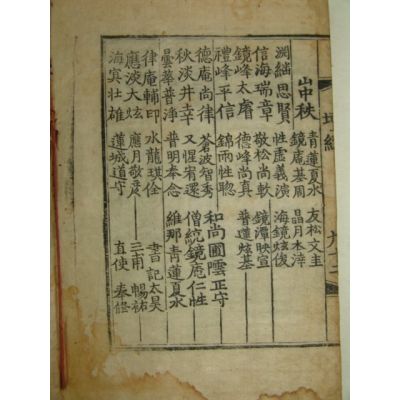 山中秩
青蓮夏水 友松文圭
鏡庵基周 晶月本淬
思賢 性虛義演 海鏡炫俊
信海瑞章 敬松尚軟 鏡潭映宣
鏡峰太膺 德峰尚真 普蓮炫基
禮峰平信 錦雨性聦
和尚圃雲正守
德庵尚律 蒼波智秀
僧統鏡庵仁性
秋淡井幸 又惺宥還
曇華普淨 普明奉念 維那青蓮夏水
律庵輔印 水龍琪佺 書記太昊
應淡大炫 應月敬彥 三甫暢祐
海賓壯雄 蓮城道守 直使奉修